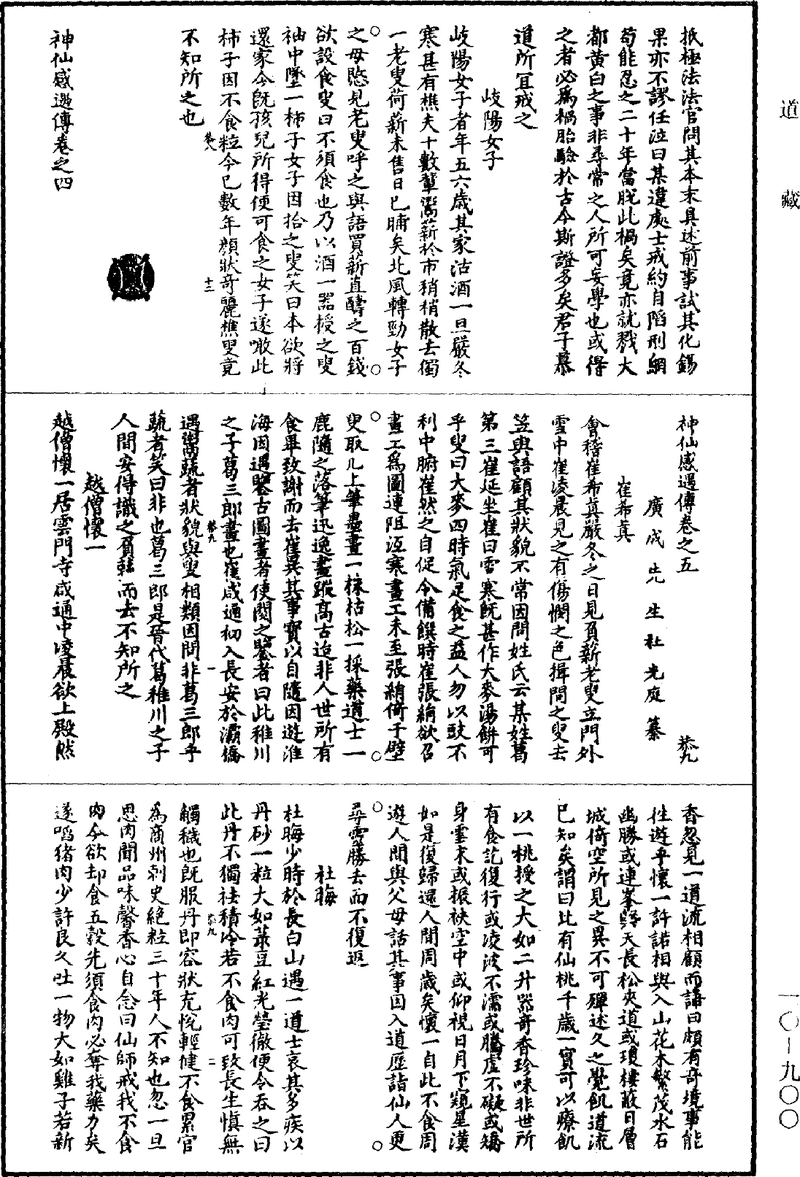 道藏
抵極法法官問其本末具述前事試其化錫
果亦不謬任泣曰某違處士戒約自陷刑網
苟能忍之二十年當脫此禍矣竟亦就戮大
都黃白之事非尋常之人所可妄學也或得
之者必為禍胎驗於古今斯證多矣君子慕
道所宜戒之
岐陽女子
岐陽女子者年五六歲其家沽酒一旦嚴冬
寒甚有樵夫十數輩鬻薪於市稍稍散去獨
一老叟荷薪未售日已晡矣北風轉勁女子
之母愍見老叟呼之與語買薪直醻之百錢
欲設食叟曰不須食也乃以酒一器授之叟
袖中墜一柿子女子因拾之叟笑曰本欲將
還家今既孩兒所得便可食之女子遂噉此
柿子因不食粒今已數年顏狀奇麗樵叟竟
不知所之也
恭八
十三
神仙感遇傳卷之四
神仙感遇傳卷之五
恭九
廣成先生杜光庭纂
崔希真
會稽崔希真嚴冬之日見負薪老叟立門外
雪中崔凌晨見之有傷憫之色揖問之叟去
笠與語顧其狀貌不常因問姓氏云某姓葛
第三崔延坐崔曰雪寒既甚作大麥湯餅可
乎叟曰大麥四時氣足食之益人勿以豉不
利中腑崔然之自促令備饌時崔張絹欲召
畫工為圖連阻沍寒畫工未至張絹倚于壁
叟取几上筆墨畫一株枯松一採藥道士一
鹿隨之落筆迅逸畫蹤高古迨非人世所有
食畢致謝而去崔異其事寶以自隨因遊淮
海因遇鑒古圖畫者使閱之鑒者曰此稚川
之子葛三郎畫也崔咸通初入長安於灞橋
恭九
一
遇鬻蔬者狀貌與叟相類因問非葛三郎乎
蔬者笑曰非也葛三郎是晉代葛稚川之子
人間安得識之負蔬而去不知所之
越僧懷一
越僧懷一居雲門寺咸通中凌晨欲上殿然
香忽見一道流相顧而語曰頗有奇境事能
往遊乎懷一許諾相與入山花木繁茂水石
幽勝或連峯槩天長松夾道或瓊樓蔽日層
城倚空所見之異不可殫述久之覺飢道流
已知矣謂曰此有仙桃千歲一實可以療飢
以一桃授之大如二升器奇香珍味非世所
有食訖復行或凌波不濡或騰虛不礙或矯
身雲末或振袂空中或仰視日月下窺星漢
如是復歸還人間周歲矣懷一自此不食周
遊人間與父母話其事因入道歷詣仙人更
尋靈勝去而不復返
杜晦
杜晦少時於長白山遇一道士哀其多疾以
丹砂一粒大如菉豆紅光瑩徹便令吞之曰
此丹不獨祛積冷若不食肉可致長生慎無
恭九
二
觸穢也既服丹即容狀充悅輕健不食累官
為商州刺史絕粒三十年人不知也忽一旦
思肉聞品味馨香心自念曰仙師戒我不食
肉今欲却食五穀先須食肉必奪我藥力矣
遂啗猪肉少許良久吐一物大如雞子若新
一〇-九〇〇